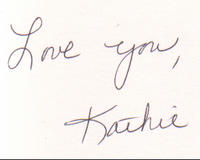 Love you,
Kathie